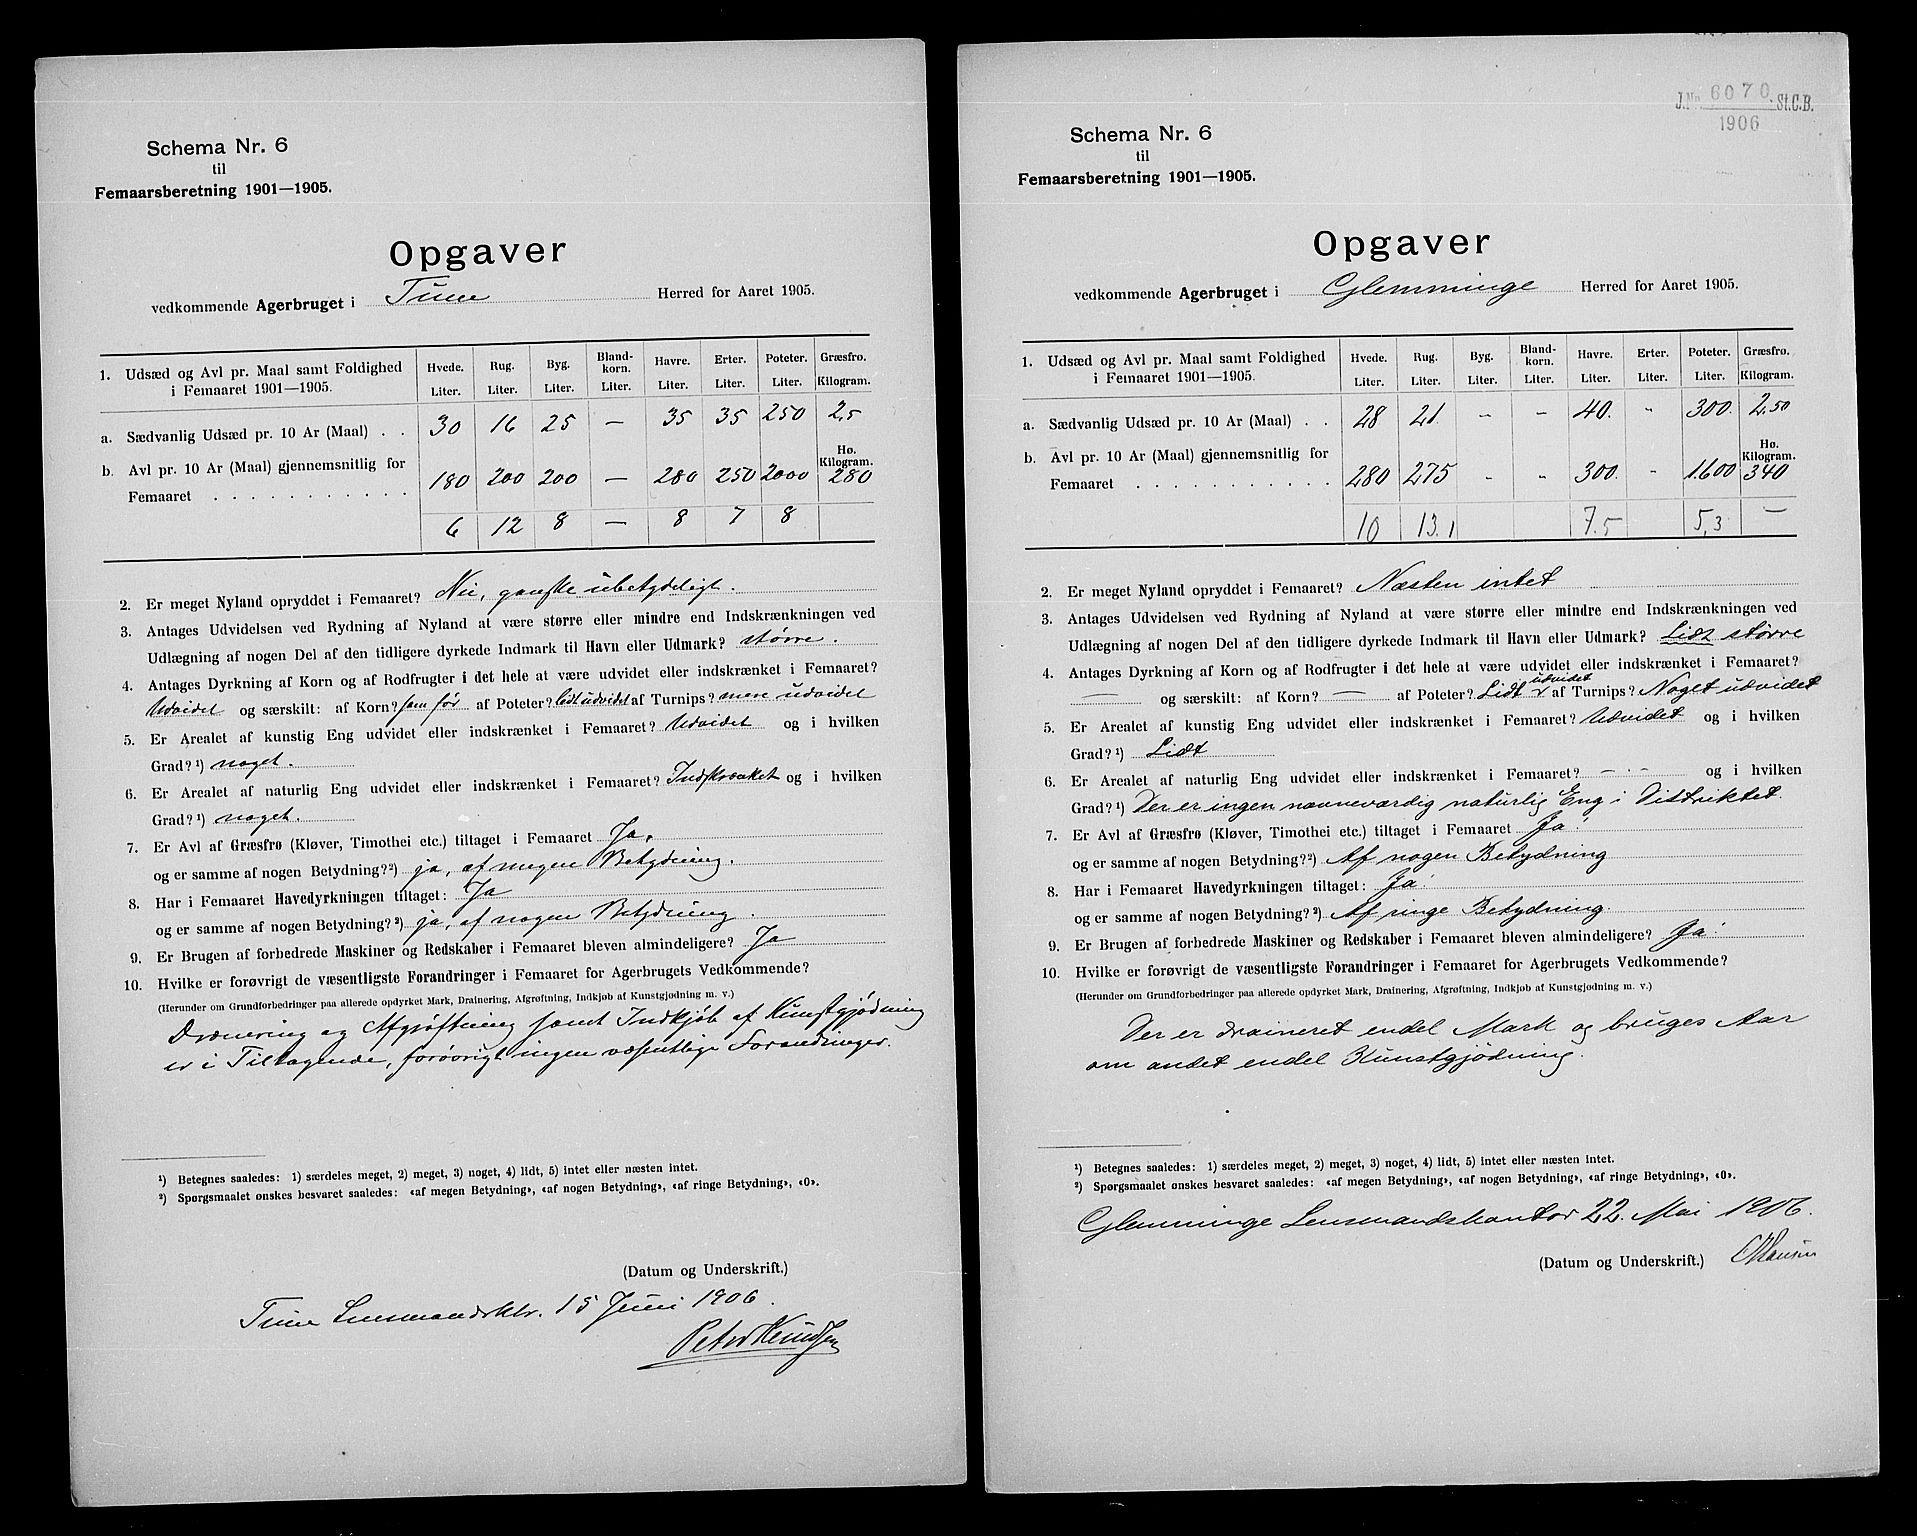 Schema Nr. 6
til
Femaarsberetning 1901—1905.
Opgaver
vedkommende Agerbruget i Tune Herred for Aaret 1905.
1. Udsæd og Avl pr. Maal samt Foldighed i Femaaret 1901—1905. Hvede. Liter. Rug. Liter. Byg. Liter. Bland-korn. Liter. Havre. Liter. Erter. Liter. Poteter. Liter. Græsfrø. Kilogram.
a. Sædvanlig Udsæd pr. 10 Ar (Maal) . . 30 16 25 — 35 35 250 2,5
Hø. Kilogram.
b. Avl pr. 10 Ar (Maal) gjennemsnitlig for
Femaaret . . . . . . . . . . . . 180 200 200 — 280 250 2000 280
6 12 8 — 8 7 8
2. Er meget Nyland opryddet i Femaaret? Nei, ganske ubetydeligt.
3. Antages Udvidelsen ved Rydning af Nyland at være større eller mindre end Indskrænkningen ved
Udlægning af nogen Del af den tidligere dyrkede Indmark til Havn eller Udmark? større.
4. Antages Dyrkning af Korn og af Rodfrugter i det hele at være udvidet eller indskrænket i Femaaret?
Udvidet og særskilt: af Korn? som før af Poteter? lidt udvidet af Turnips? mere udvidet
5. Er Arealet af kunstig Eng udvidet eller indskrænket i Femaaret? Udvidet og i hvilken
Grad?¹) noget.
6. Er Arealet af naturlig Eng udvidet eller indskrænket i Femaaret? Indskrænket og i hvilken
Grad?¹) noget.
7. Er Avl af Græsfrø (Kløver, Timothei etc.) tiltaget i Femaaret Ja.
og er samme af nogen Betydning?²) ja, af megen Betydning.
8. Har i Femaaret Havedyrkningen tiltaget: Ja
og er samme af nogen Betydning?²) ja, af nogen Betydning.
9. Er Brugen af forbedrede Maskiner og Redskaber i Femaaret bleven almindeligere? Ja
10. Hvilke er forøvrigt de væsentligste Forandringer i Femaaret for Agerbrugets Vedkommende?
(Herunder om Grundforbedringer paa allerede opdyrket Mark, Drainering, Afgrøftning, Indkjøb af Kunstgjødning m. v.)
Drænering og Afgrøftning samt Indkjøb af Kunstgjødning
er i Tiltagende, forøvrigt ingen væsentlige Forandringer.
¹) Betegnes saaledes: 1) særdeles meget, 2) meget, 3) noget, 4) lidt, 5) intet eller næsten intet.
²) Spørgsmaalet ønskes besvaret saaledes: «af megen Betydning», «af nogen Betydning», «af ringe Betydning», «0».
(Datum og Underskrift.)
Tune Lensmandsktr. 15 Juni 1906.
Peter Knudsen
J.Nr. 6070 St.C.B.
1906
Schema Nr. 6
til
Femaarsberetning 1901—1905.
Opgaver
vedkommende Agerbruget i Glemminge Herred for Aaret 1905.
1. Udsæd og Avl pr. Maal samt Foldighed i Femaaret 1901—1905. Hvede. Liter. Rug. Liter. Byg. Liter. Bland-korn. Liter. Havre. Liter. Erter. Liter. Poteter. Liter. Græsfrø. Kilogram.
a. Sædvanlig Udsæd pr. 10 Ar (Maal) . . 28 21. " " 40. " 300. 2,50
Hø. Kilogram.
b. Avl pr. 10 Ar (Maal) gjennemsnitlig for
Femaaret . . . . . . . . . . . 280 275 " " 300. " 1.600 340
10 13.1 7.5 5,3 —
2. Er meget Nyland opryddet i Femaaret? Næsten intet
3. Antages Udvidelsen ved Rydning af Nyland at være større eller mindre end Indskrænkningen ved
Udlægning af nogen Del af den tidligere dyrkede Indmark til Havn eller Udmark? Lidt større
4. Antages Dyrkning af Korn og af Rodfrugter i det hele at være udvidet eller indskrænket i Femaaret?
— og særskilt: af Korn? — af Poteter? Lidt udvidet af Turnips? Noget udvidet
5. Er Arealet af kunstig Eng udvidet eller indskrænket i Femaaret? Udvidet og i hvilken
Grad?¹) Lidt
6. Er Arealet af naturlig Eng udvidet eller indskrænket i Femaaret? — · — og i hvilken
Grad?¹) Der er ingen navneværdig naturlig Eng i Distriktet
7. Er Avl af Græsfrø (Kløver, Timothei etc.) tiltaget i Femaaret Ja!
og er samme af nogen Betydning?²) Af nogen Betydning
8. Har i Femaaret Havedyrkningen tiltaget: Ja!
og er samme af nogen Betydning?²) Af ringe Betydning.
9. Er Brugen af forbedrede Maskiner og Redskaber i Femaaret bleven almindeligere? Ja!
10. Hvilke er forøvrigt de væsentligste Forandringer i Femaaret for Agerbrugets Vedkommende?
(Herunder om Grundforbedringer paa allerede opdyrket Mark, Drainering, Afgrøftning, Indkjøb af Kunstgjødning m. v.)
Der er draineret endel Mark og bruges Aar
om andet endel Kunstgjødning.
¹) Betegnes saaledes: 1) særdeles meget, 2) meget, 3) noget, 4) lidt, 5) intet eller næsten intet.
²) Spørgsmaalet ønskes besvaret saaledes: «af megen Betydning», «af nogen Betydning», «af ringe Betydning», «0».
Glemminge Lensmandskontor 22. Mai 1906.
(Datum og Underskrift.)